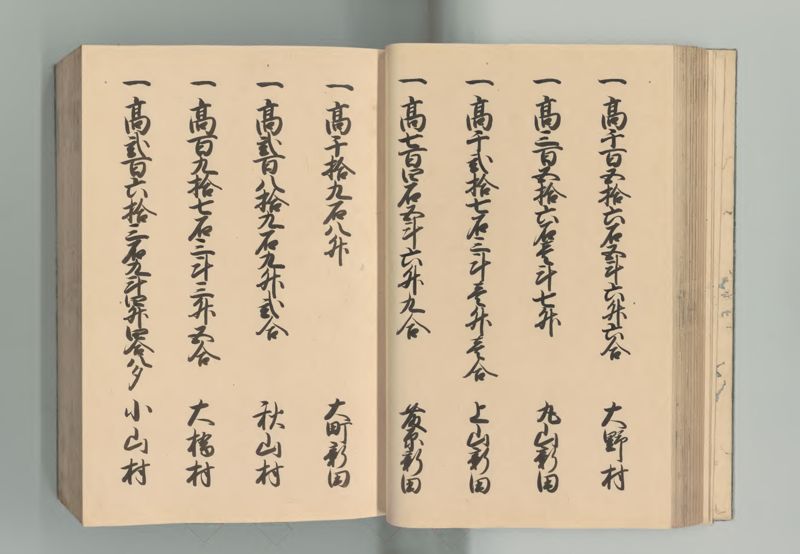 一 高千百五拾六石五斗六升六合 大野村
一 高三百五拾六石壱斗七升 丸山新田
一 高千弐拾七石三斗壱升壱合 上山新田
一 高七百四石五斗六升九合 新田
一 高千拾九石八升 大町新田
一 高弐百八拾九石九升弐合 秋山村
一 高百九拾七石三斗三升五合 大橋村
一 高弐百六拾三石九斗四升四合八夕 小山村